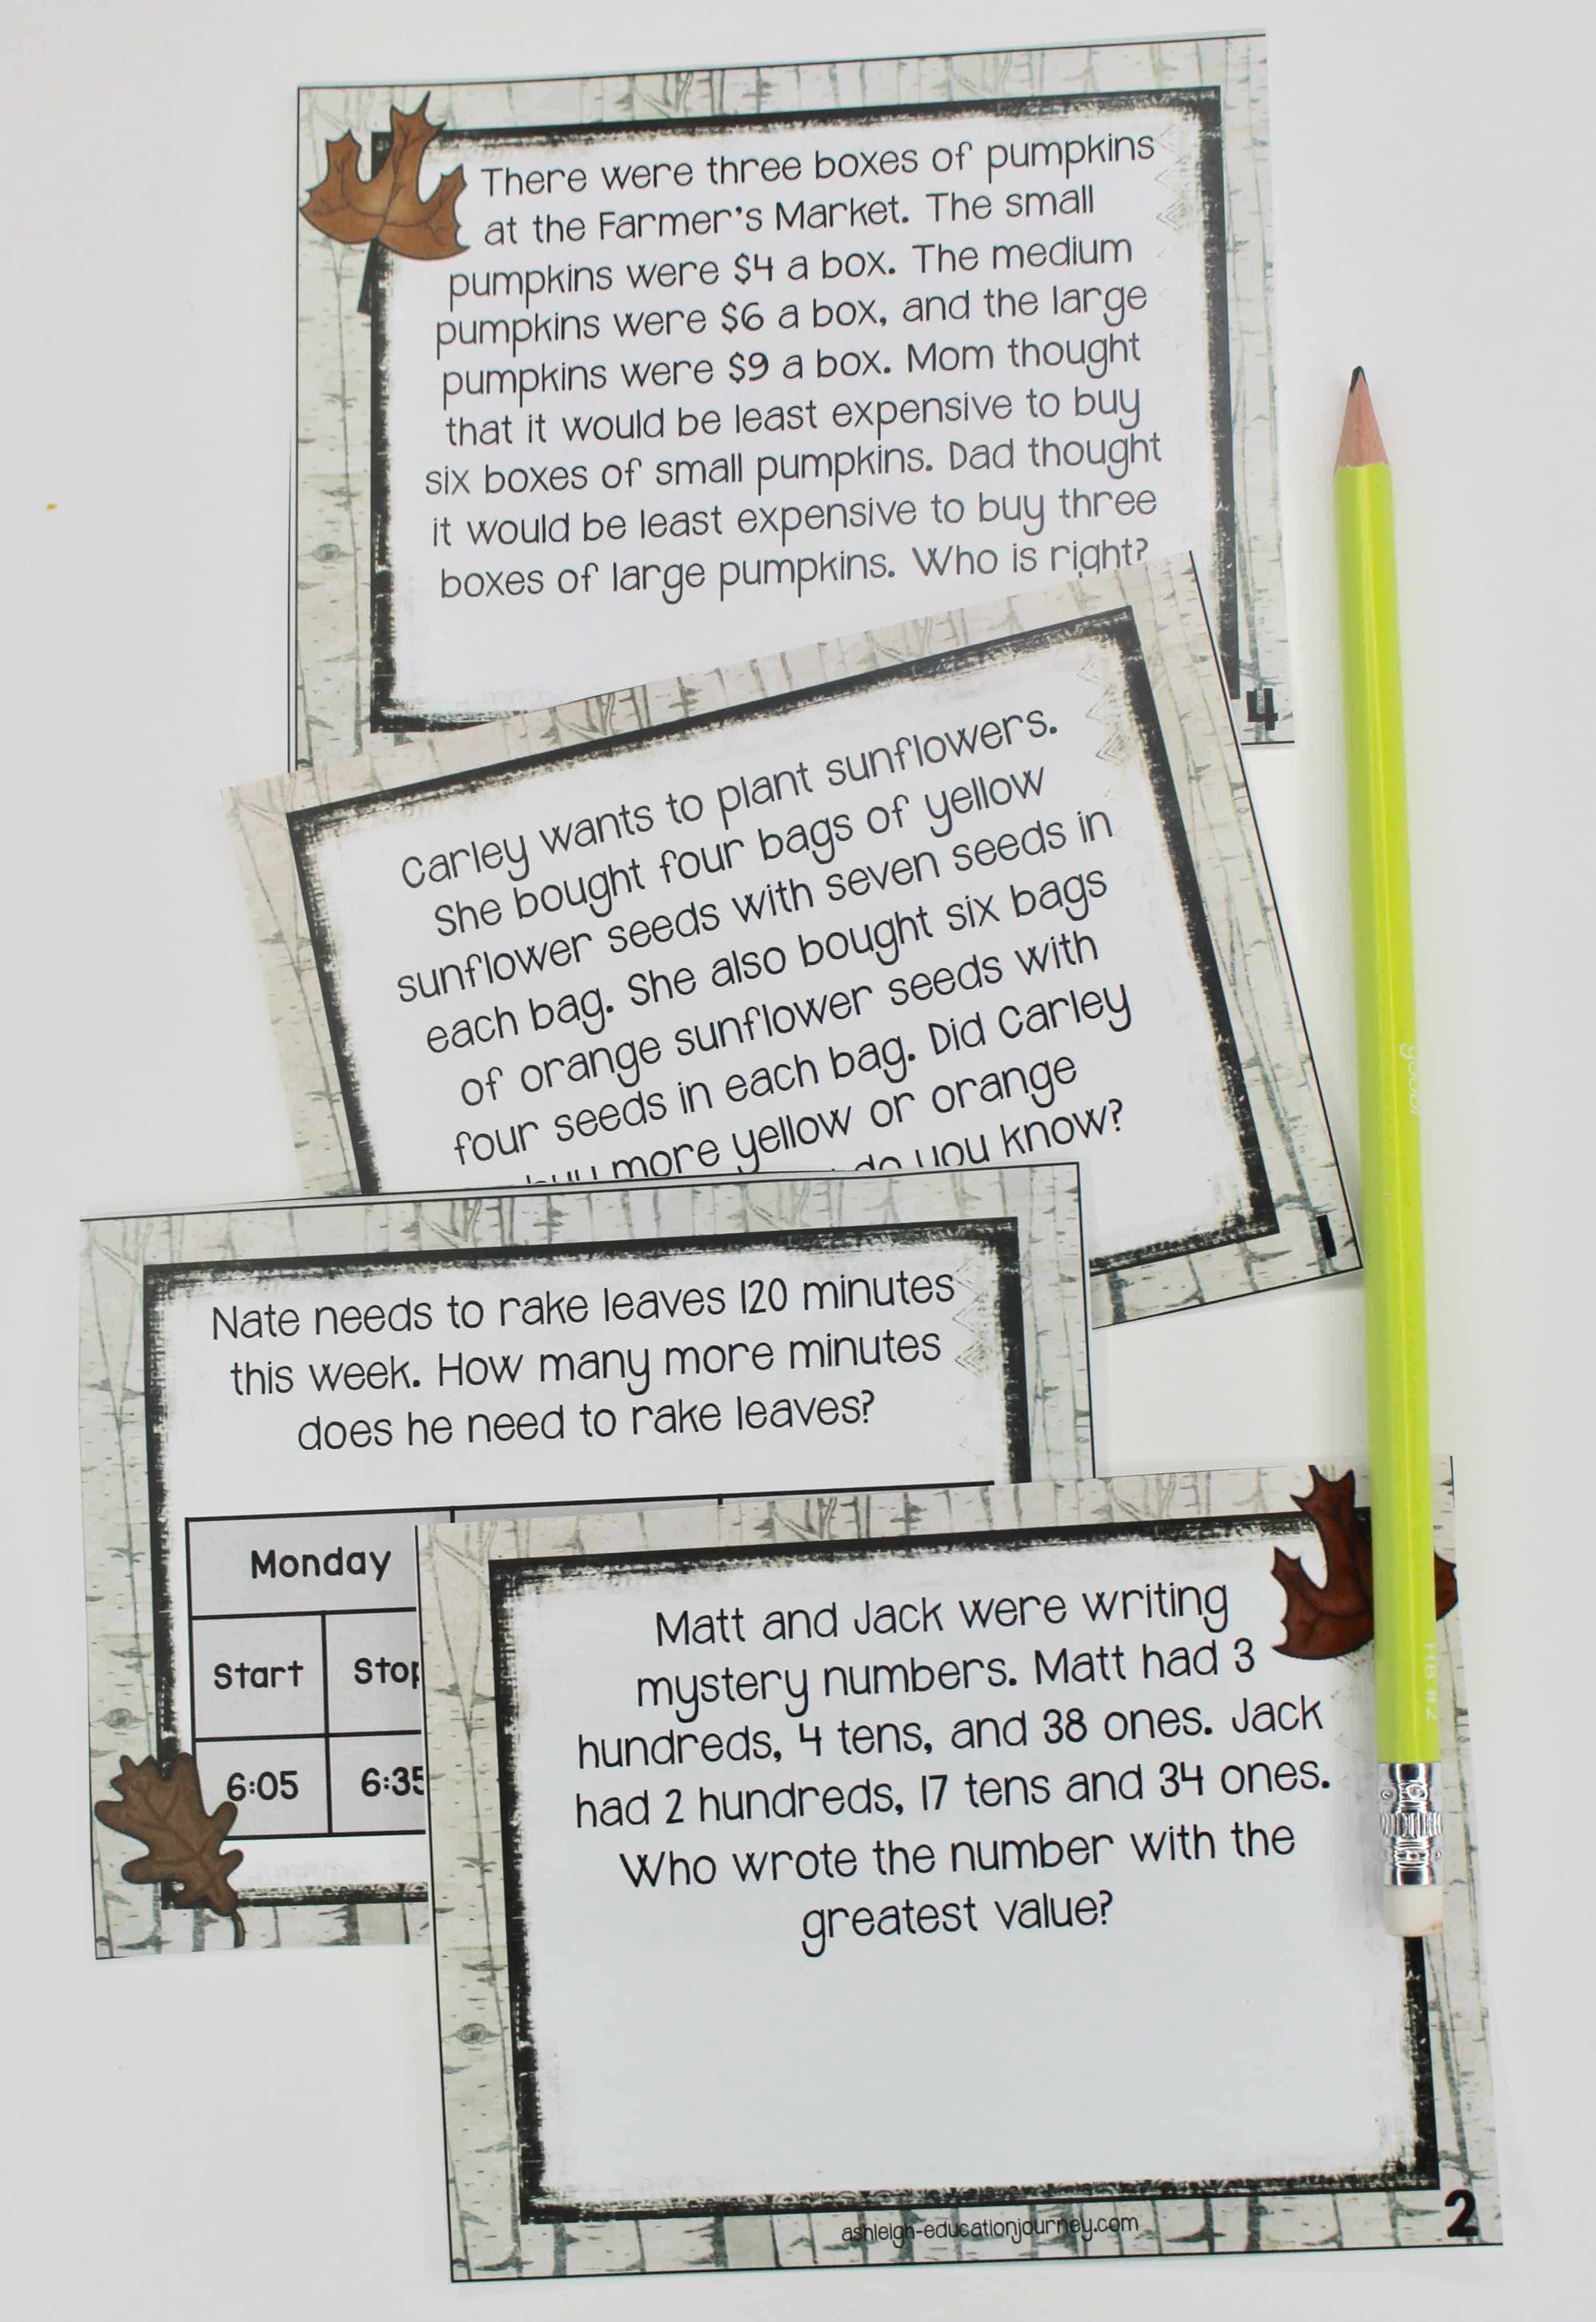 There were three boxes of pumpkins
at the Farmer's Market. The small
pumpkins were $4 a box. The medium
pumpkins were $6 a box, and the large
pumpkins were $9 a box. Mom thought
that it would be least expensive to buy
six boxes of small pumpkins. Dad thought
it would be least expensive to buy three
boxes of large pumpkins. Who is right?
4
Carley wants to plant sunflowers.
She bought four bags of yellow
sunflower seeds with seven seeds in
each bag. She also bought six bags
of orange sunflower seeds with
four seeds in each bag. Did Carley
buy more yellow or orange
do you know?
1
Nate needs to rake leaves 120 minutes
this week. How many more minutes
does he need to rake leaves?
Monday
Start Stop
6:05 6:35
Matt and Jack were writing
mystery numbers. Matt had 3
hundreds, 4 tens, and 38 ones. Jack
had 2 hundreds, 17 tens and 34 ones.
Who wrote the number with the
greatest value?
ashleigh-educationjourney.com
2
HB #2